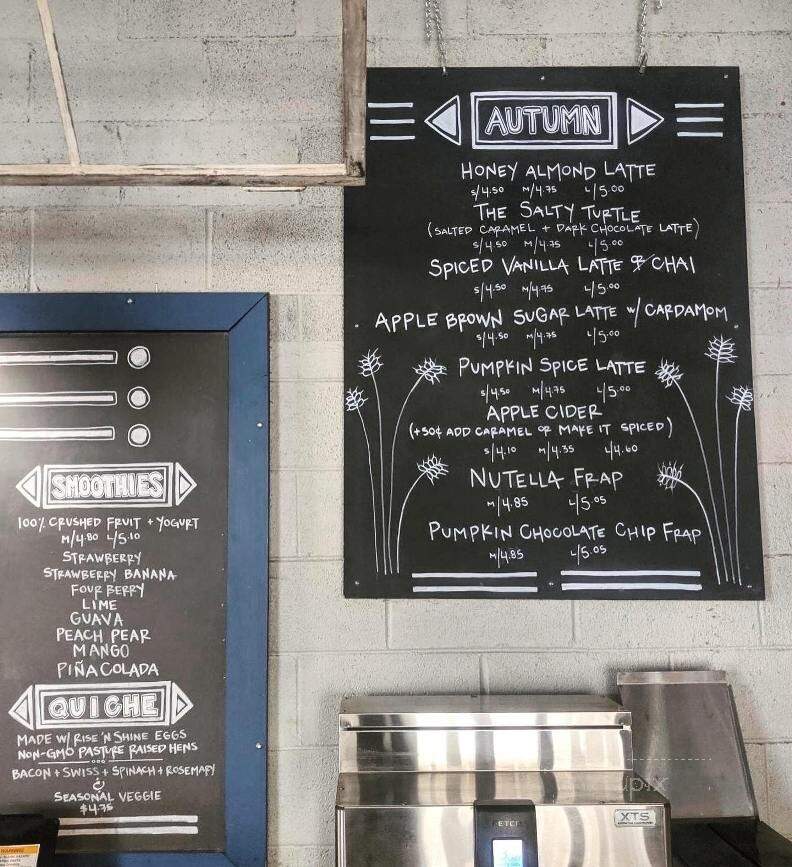 AUTUMN
HONEY ALMOND LATTE
S/4.50 M/4.75 L/5.00
THE SALTY TURTLE
(SALTED CARAMEL + DARK CHOCOLATE LATTE)
S/4.50 M/4.75 L/5.00
SPICED VANILLA LATTE OR CHAI
S/4.50 M/4.75 L/5.00
APPLE BROWN SUGAR LATTE W/ CARDAMOM
S/4.50 M/4.75 L/5.00
PUMPKIN SPICE LATTE
S/4.50 M/4.75 L/5.00
APPLE CIDER
(+50¢ ADD CARAMEL OR MAKE IT SPICED)
S/4.10 M/4.35 L/4.60
NUTELLA FRAP
M/4.85 L/5.05
PUMPKIN CHOCOLATE CHIP FRAP
M/4.85 L/5.05
SMOOTHIES
100% CRUSHED FRUIT + YOGURT
M/4.80 L/5.10
STRAWBERRY
STRAWBERRY BANANA
FOUR BERRY
LIME
GUAVA
PEACH PEAR
MANGO
PIÑA COLADA
QUICHE
MADE W/ RISE 'N SHINE EGGS
NON-GMO PASTURE RAISED HENS
BACON + SWISS + SPINACH + ROSEMARY
&
SEASONAL VEGGIE
$4.75
XTS
WARNING